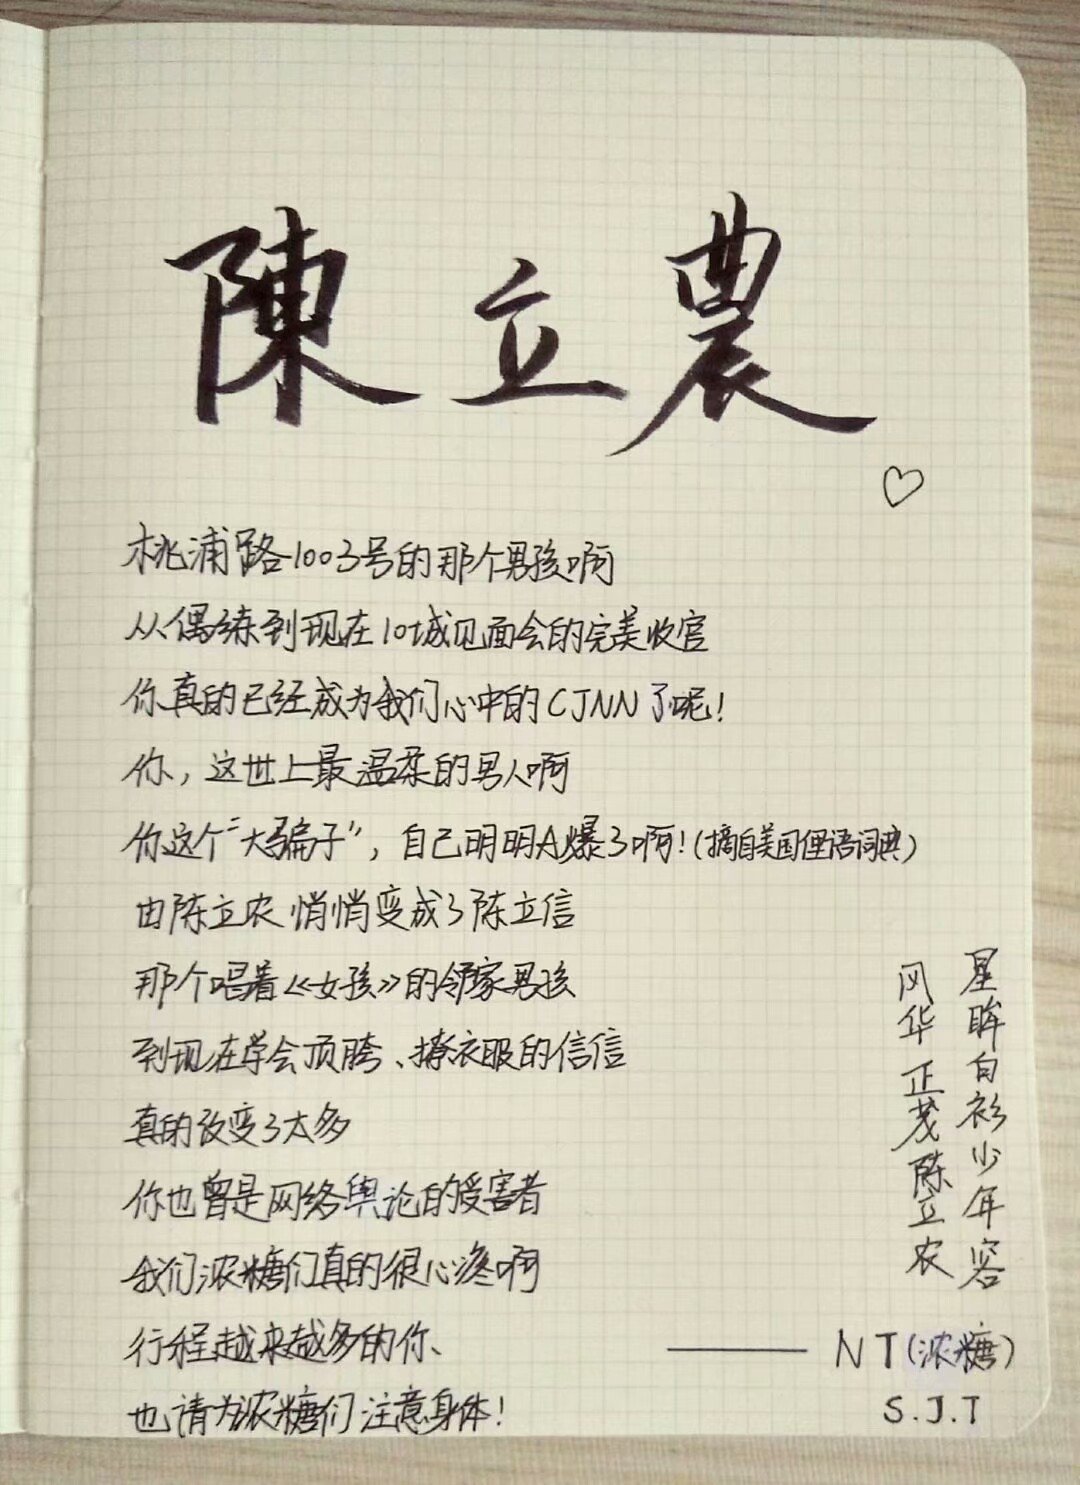 陳立農
桃浦路1003号的那个男孩啊
从偶练到现在10城见面会的完美收官
你真的已经成为我们心中的CJNN了呢！
你，这世上最温柔的男人啊
你这个“大骗子”，自己明明A爆了啊！(摘自美国俚语词典)
由陈立农悄悄变成了陈立信
那个唱着《女孩》的邻家男孩
到现在学会顶胯、撩衣服的信信
真的改变了太多
你也曾是网络舆论的受害者
我们浓糖们真的很心疼啊
行程越来越多的你、
也请为浓糖们注意身体！
星眸白衫少年容
风华正茂陈立农
——NT(浓糖)
S.J.T